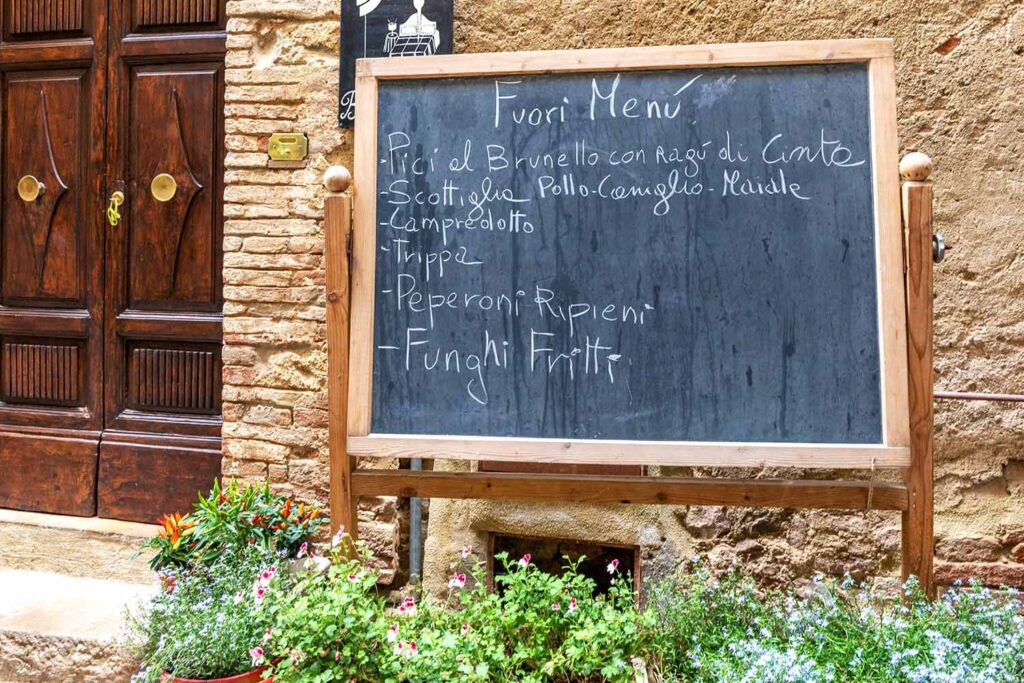 Fuori Menú
-Pici al Brunello con Ragú di Cinta
-Scottiglia Pollo-Coniglio-Maiale
-Lampredotto
-Trippa
-Peperoni Ripieni
-Funghi Fritti